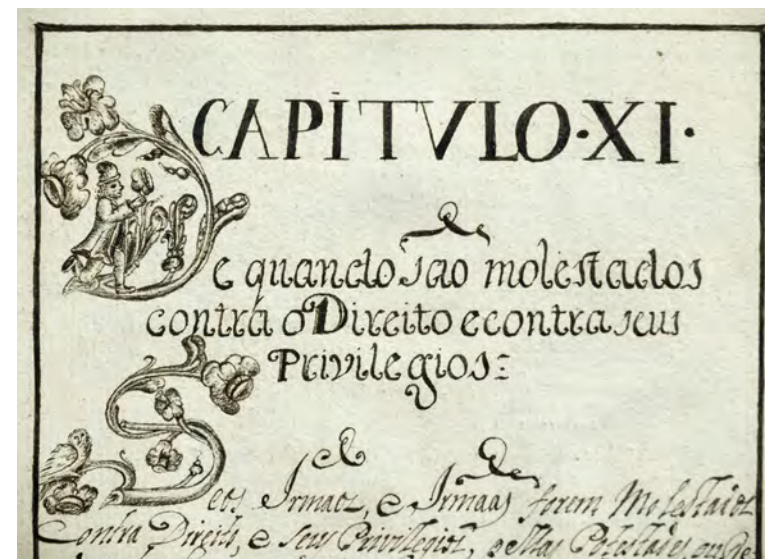 CAPITVLO·XI·
De quando são molestados
contra o Direito e contra seus
Privilegios:
Se os Irmaos, e Irmaas forem Molestados
Contra Direito, e seus Privilegios, pellas Potestades